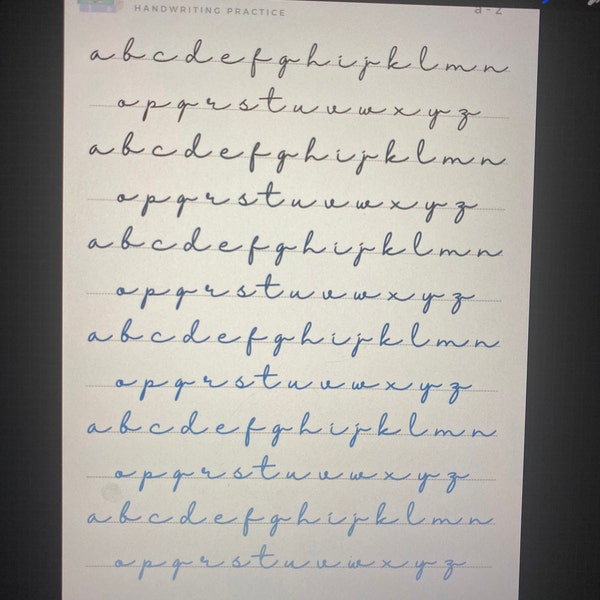 HANDWRITING PRACTICE
a-z
a b c d e f g h i j k l m n
o p q r s t u v w x y z
a b c d e f g h i j k l m n
o p q r s t u v w x y z
a b c d e f g h i j k l m n
o p q r s t u v w x y z
a b c d e f g h i j k l m n
o p q r s t u v w x y z
a b c d e f g h i j k l m n
o p q r s t u v w x y z
a b c d e f g h i j k l m n
o p q r s t u v w x y z